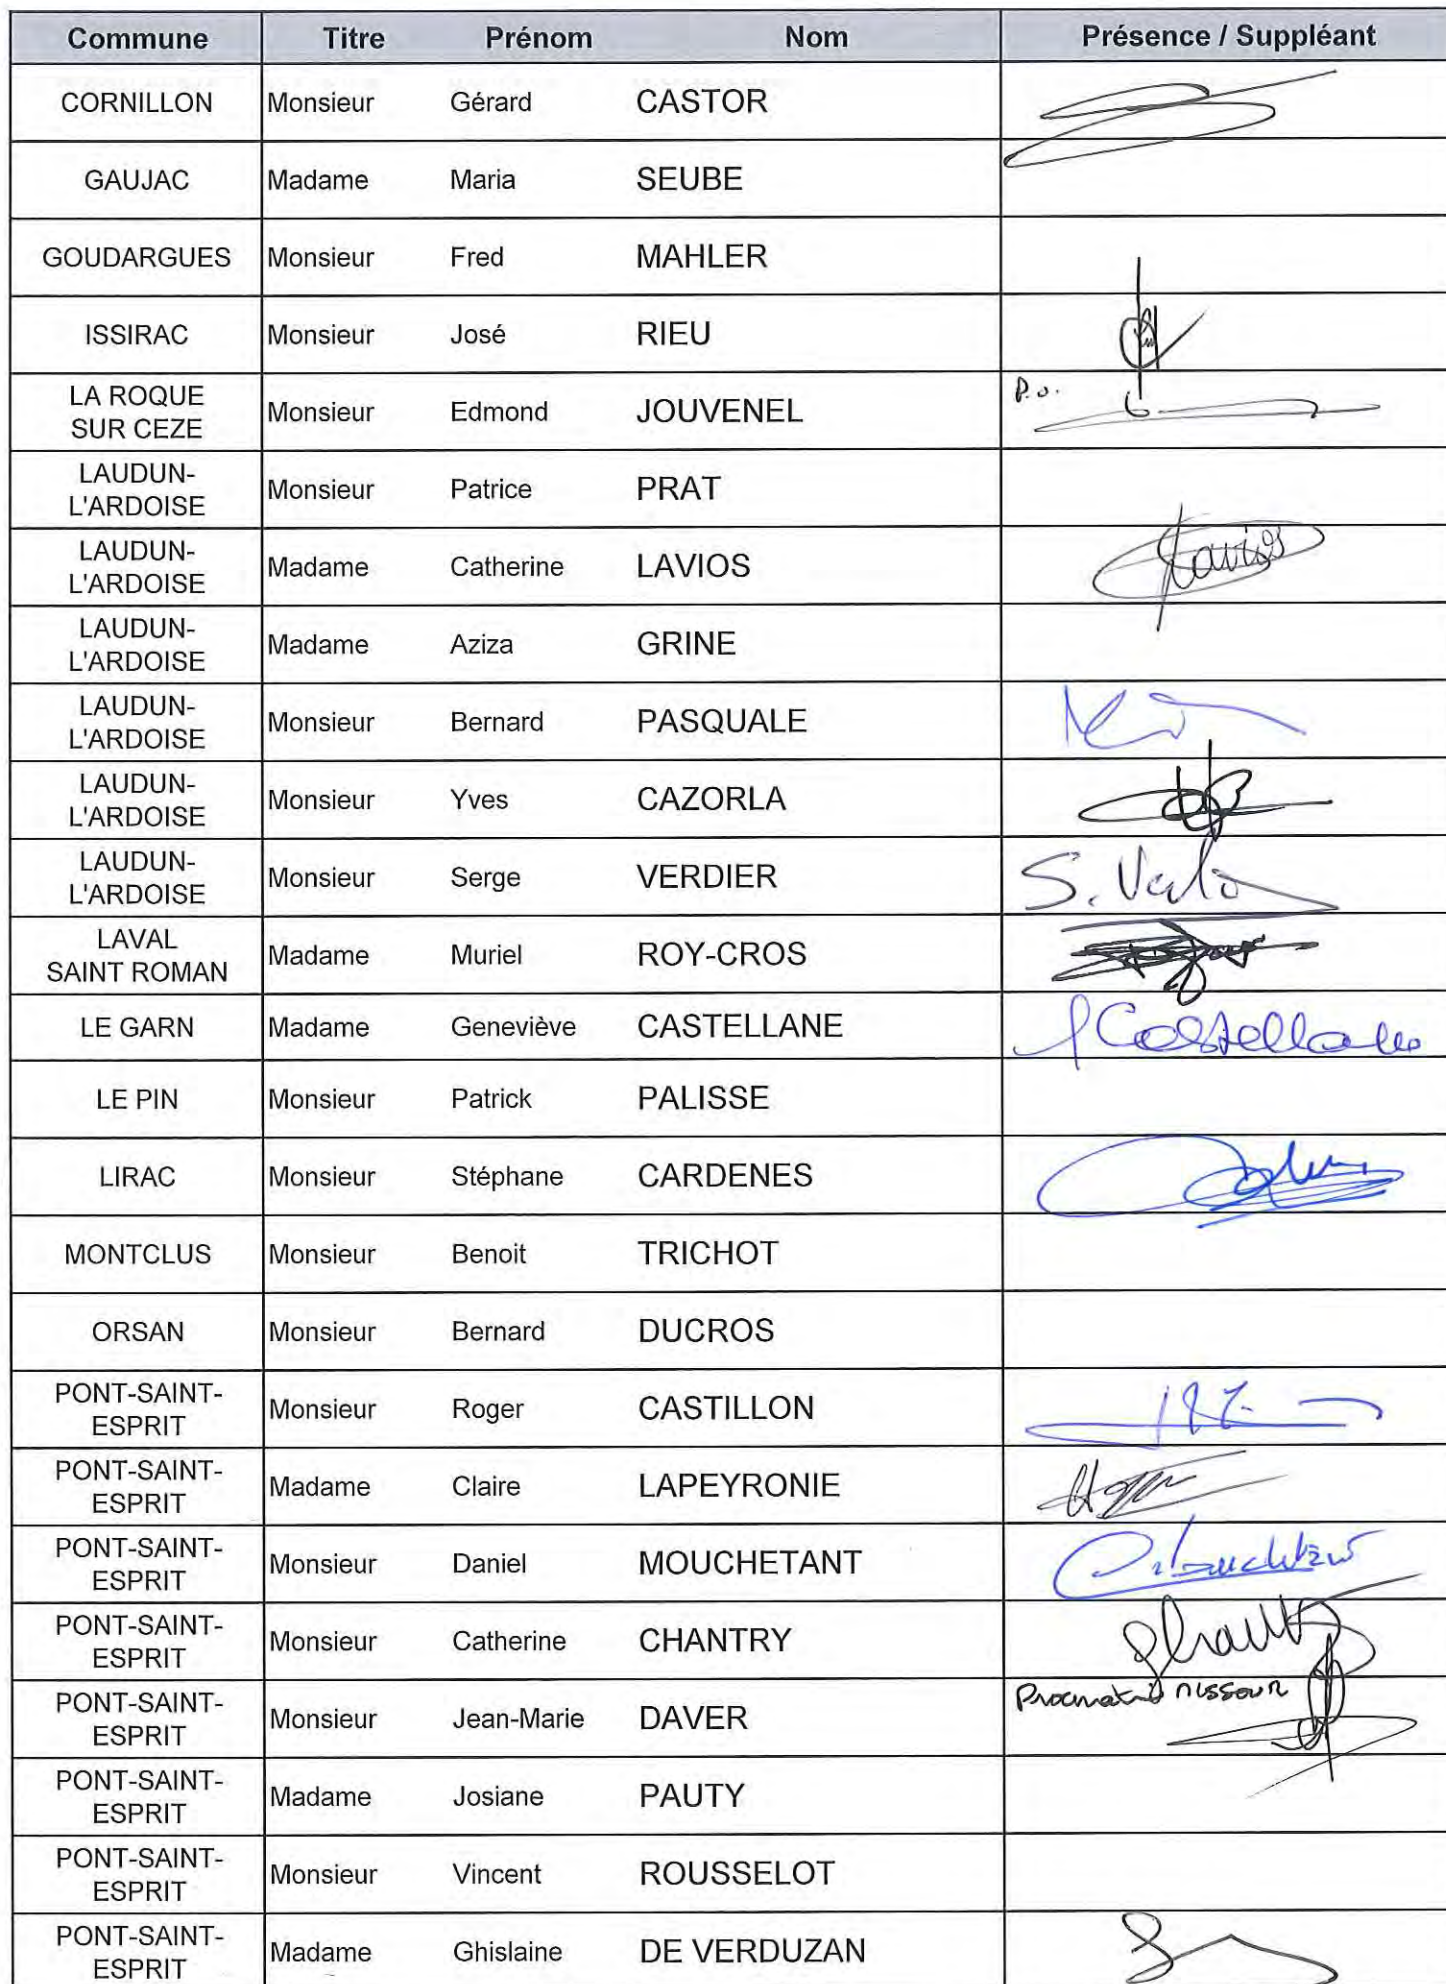 Commune Titre Prénom Nom Présence / Suppléant
CORNILLON Monsieur Gérard CASTOR
GAUJAC Madame Maria SEUBE
GOUDARGUES Monsieur Fred MAHLER
ISSIRAC Monsieur José RIEU
LA ROQUE
SUR CEZE Monsieur Edmond JOUVENEL P.o.
LAUDUN-
L'ARDOISE Monsieur Patrice PRAT
LAUDUN-
L'ARDOISE Madame Catherine LAVIOS Lavios
LAUDUN-
L'ARDOISE Madame Aziza GRINE
LAUDUN-
L'ARDOISE Monsieur Bernard PASQUALE
LAUDUN-
L'ARDOISE Monsieur Yves CAZORLA
LAUDUN-
L'ARDOISE Monsieur Serge VERDIER S.
LAVAL
SAINT ROMAN Madame Muriel ROY-CROS
LE GARN Madame Geneviève CASTELLANE
LE PIN Monsieur Patrick PALISSE
LIRAC Monsieur Stéphane CARDENES
MONTCLUS Monsieur Benoit TRICHOT
ORSAN Monsieur Bernard DUCROS
PONT-SAINT-
ESPRIT Monsieur Roger CASTILLON
PONT-SAINT-
ESPRIT Madame Claire LAPEYRONIE
PONT-SAINT-
ESPRIT Monsieur Daniel MOUCHETANT
PONT-SAINT-
ESPRIT Monsieur Catherine CHANTRY
PONT-SAINT-
ESPRIT Monsieur Jean-Marie DAVER
PONT-SAINT-
ESPRIT Madame Josiane PAUTY
PONT-SAINT-
ESPRIT Monsieur Vincent ROUSSELOT
PONT-SAINT-
ESPRIT Madame Ghislaine DE VERDUZAN